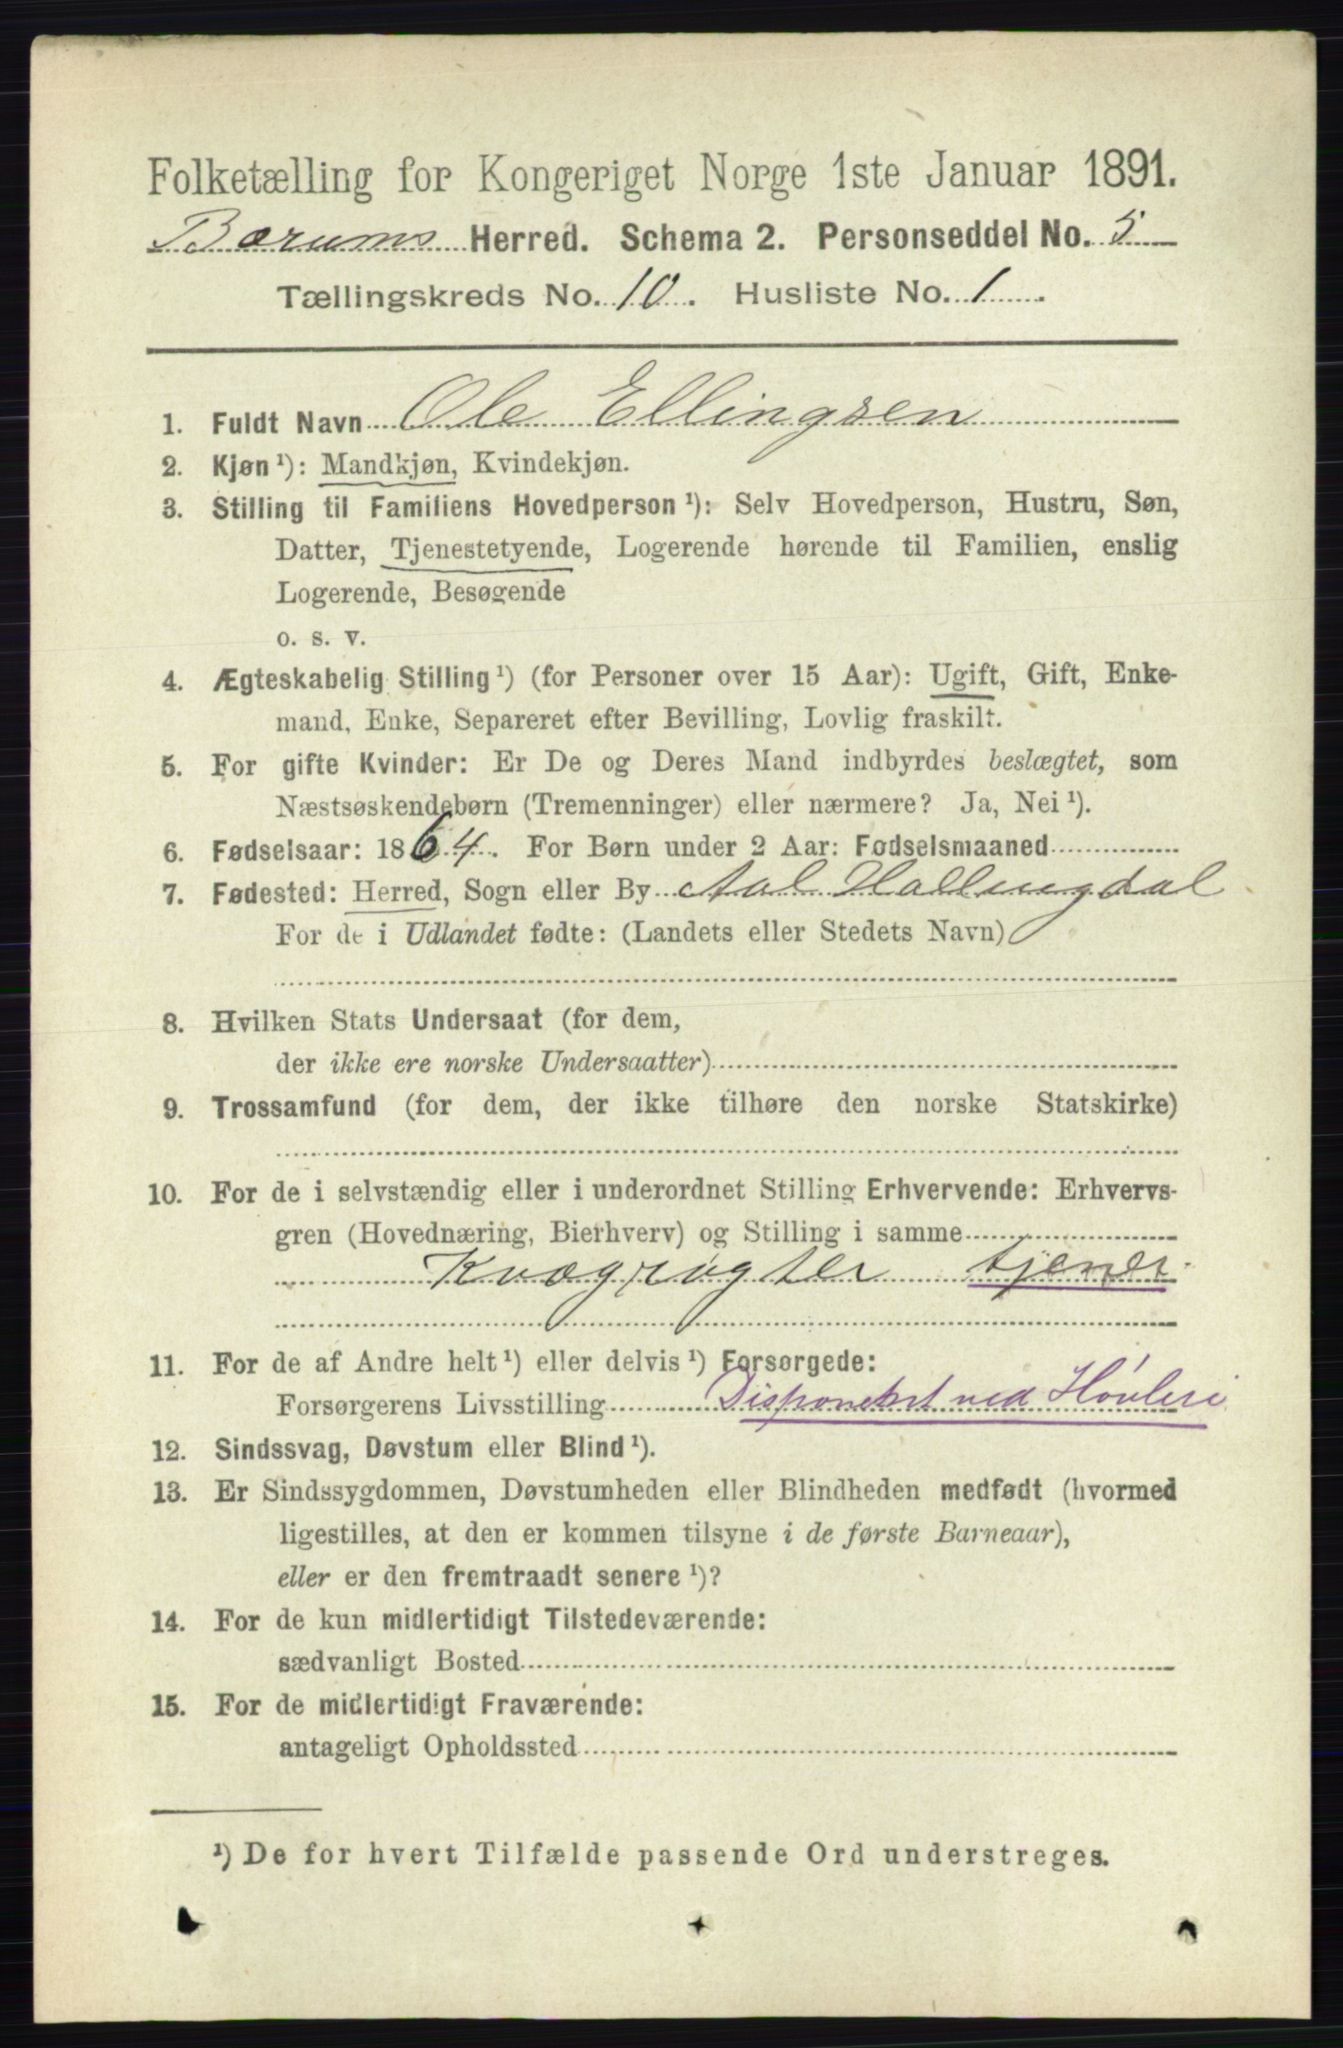 Folketælling for Kongeriget Norge 1ste Januar 1891.
Bærums Herred. Schema 2. Personseddel No. 5
Tællingskreds No. 10. Husliste No. 1
1. Fuldt Navn Ole Ellingsen
2. Kjøn ¹): Mandkjøn, Kvindekjøn.
3. Stilling til Familiens Hovedperson ¹): Selv Hovedperson, Hustru, Søn,
Datter, Tjenestetyende, Logerende hørende til Familien, enslig
Logerende, Besøgende
o. s. v.
4. Ægteskabelig Stilling ¹) (for Personer over 15 Aar): Ugift, Gift, Enke-
mand, Enke, Separeret efter Bevilling, Lovlig fraskilt.
5. For gifte Kvinder: Er De og Deres Mand indbyrdes beslægtet, som
Næstsøskendebørn (Tremenninger) eller nærmere? Ja, Nei ¹).
6. Fødselsaar: 1864. For Børn under 2 Aar: Fødselsmaaned
7. Fødested: Herred, Sogn eller By Aal Hallingdal
For de i Udlandet fødte: (Landets eller Stedets Navn)
8. Hvilken Stats Undersaat (for dem,
der ikke ere norske Undersaatter)
9. Trossamfund (for dem, der ikke tilhøre den norske Statskirke)
10. For de i selvstændig eller i underordnet Stilling Erhvervende: Erhvervs-
gren (Hovednæring, Bierhverv) og Stilling i samme
Kvægrøgter tjener
11. For de af Andre helt ¹) eller delvis ¹) Forsørgede:
Forsørgerens Livsstilling Disponent ved Høvleri
12. Sindssvag, Døvstum eller Blind ¹).
13. Er Sindssygdommen, Døvstumheden eller Blindheden medfødt (hvormed
ligestilles, at den er kommen tilsyne i de første Barneaar),
eller er den fremtraadt senere ¹)?
14. For de kun midlertidigt Tilstedeværende:
sædvanligt Bosted
15. For de midlertidigt Fraværende:
antageligt Opholdssted
¹) De for hvert Tilfælde passende Ord understreges.